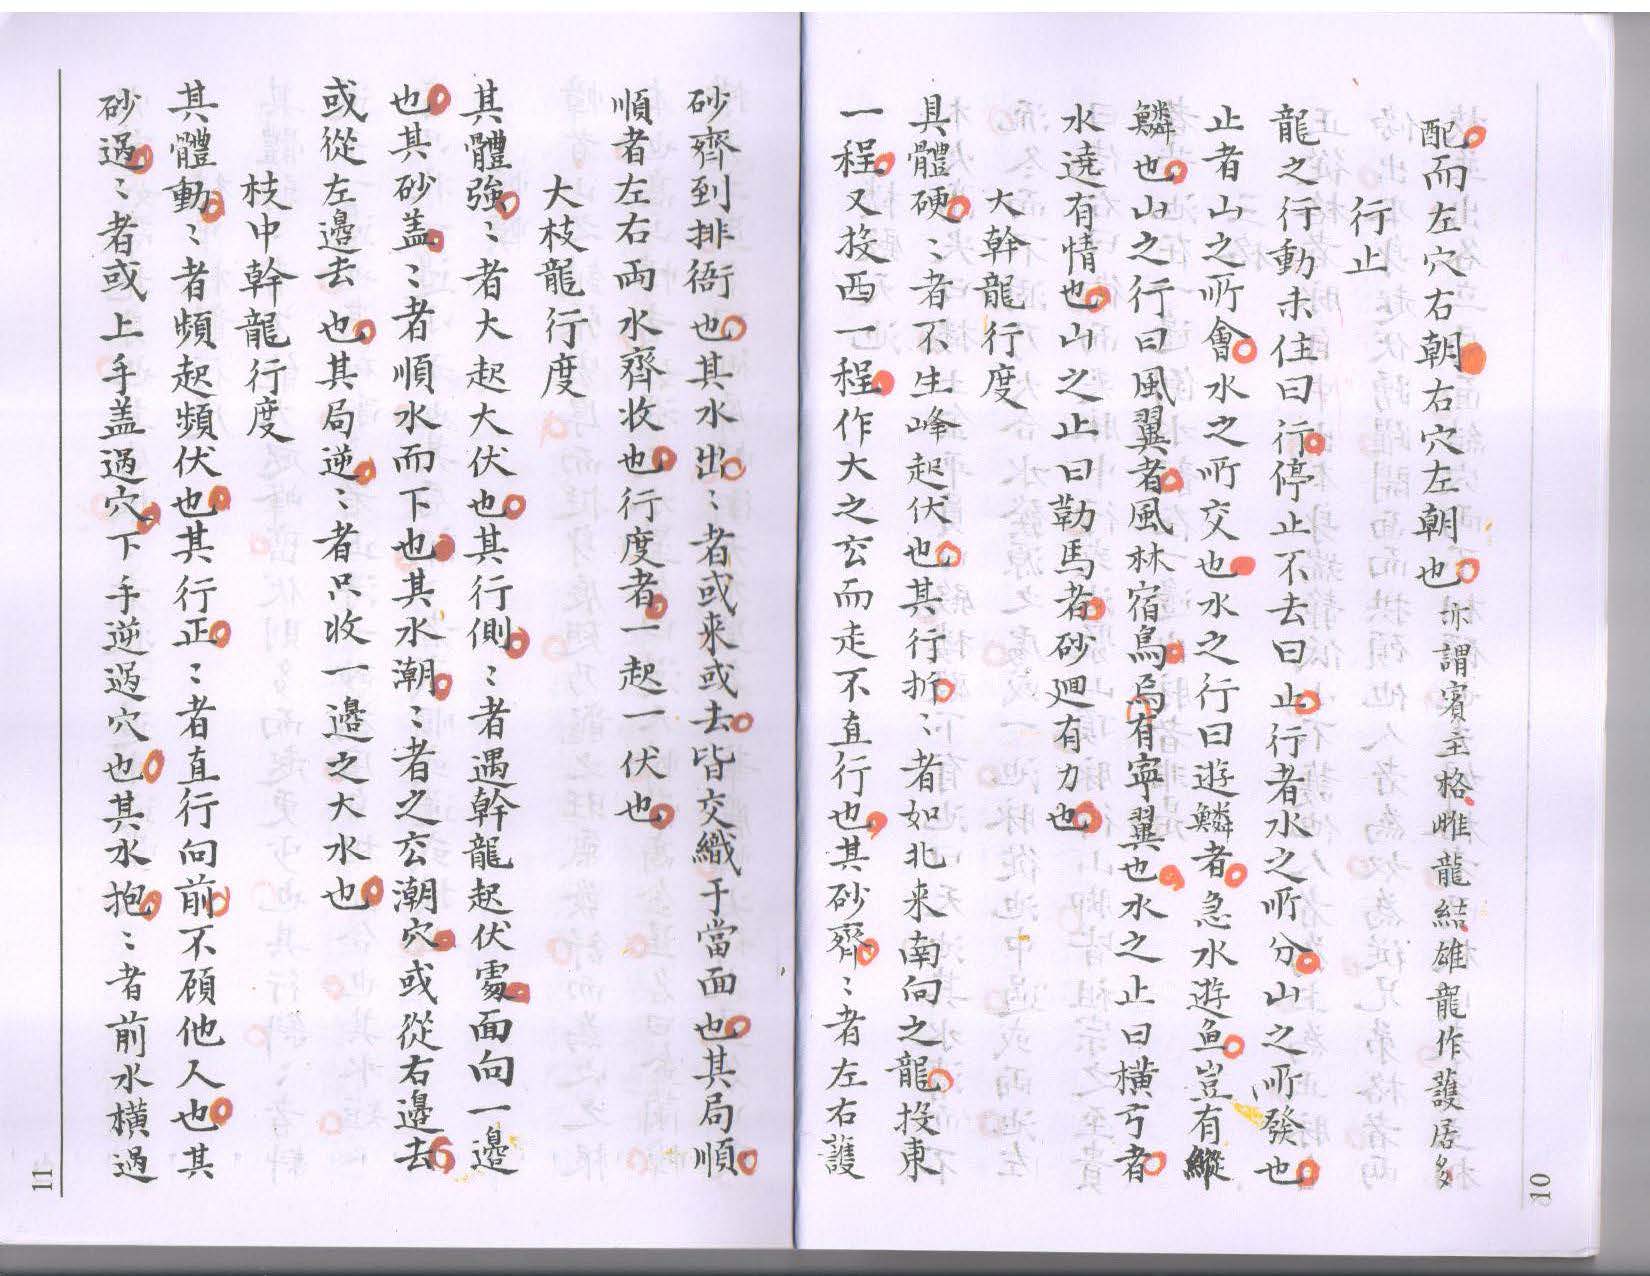 配而左穴右朝右穴左朝也亦謂賓主格雌龍結雄龍作護居多
行止
龍之行動未住曰行停止不去曰止行者水之所分山之所發也
止者山之所會水之所交也水之行曰遊鱗者急水遊魚豈有縱
鱗也山之行曰風翼者風林宿鳥焉有寧翼也水之止曰橫弓者
水遶有情也山之止曰勒馬者砂廻有力也
大幹龍行度
具體硬〻者不生峰起伏也其行折〻者如北来南向之龍投東
一程又投西一程作大之玄而走不直行也其砂齊〻者左右護
砂齊到排衙也其水出〻者或来或去皆交織于當面也其局順
順者左右両水齊收也行度者一起一伏也
大枝龍行度
其體強〻者大起大伏也其行側〻者遇幹龍起伏䖏面向一邊
也其砂盖〻者順水而下也其水潮〻者之玄潮穴或從右邊去
或從左邊去也其局逆〻者只收一邊之大水也
枝中幹龍行度
其體動〻者頻起頻伏也其行正〻者直行向前不顧他人也其
砂過〻者或上手盖過穴下手逆過穴也其水抱〻者前水橫過
10
11